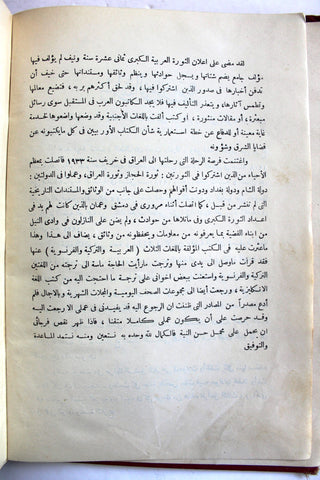 لقد مضى على اعلان الثورة العربية الكبرى ثمانى عشرة سنة ونيف لم يؤلف فيها
مؤلف جامع يضم شتاتها ويسجل حوادثها وينظم وثائقها ومستنداتها حتى خيف أن
تدفن أخبارها فى صدور الذين اشتركوا فيها، وقد لحق أكثرهم بربه، فتضيع معالمها
وتطمس آثارها، ويتعذر التأليف فيها فلا يجد الكاتبون العرب فى المستقبل سوى رسائل
مبعثرة، أو مقالات منثورة، او كتب الفت باللغات الأجنبية وقد وضعها واضعوها لخدمة
غاية معينة أو للدفاع عن خطة استعمارية شأن الكتاب الاوربيين فى كل مايكتبونه عن
قضايا الشرق وشؤونه
واغتنمت فرصة الرحلة التى رحلتها الى العراق فى خريف سنة ١٩٣٣ فاتصلت بمعظم
الأحياء من الذين اشتركوا فى الثورتين: ثورة الحجاز وثورة العراق، وعملوا فى الدولتين:
دولة الشام ودولة بغداد ودونت أقوالهم وحصلت على جانب من الوثائق والمستندات التاريخية
التى لم تنشر من قبل، كما اتصلت أثناء مرورى فى دمشق وعمان بالذين كانت لهم يد فى
اعداد الثورة الكبرى وفى ماتلاها من حوادث، ولم يضن على النازلون فى وادى النيل
من ابناء القضية بما يعرفونه من معلومات ويحفظونه من وثائق، يضاف الى هذا وهذا
ماعثرت عليه فى الكتب المؤلفة باللغات الثلاث (العربية والتركية والفرنسوية) عنها
فقد قرأت ماوصل الى يدى منها وترجمت مارأيت الحاجة ماسة الى ترجمته من اللغتين
التركية والفرنسوية واستعنت ببعض اخوانى على ترجمة ما احتجت اليه من كتب اللغة
الانكليزية، ورجعت أيضا الى مجموعات الصحف اليومية والمجلات الشهرية وبالاجمال فلم
أدع مصدراً من المصادر التى ظننت ان الرجوع اليه قد يفيدنى فى عملى الا رجعت اليه
وقد حرصت على أن يكون عملى كاملا متقنا، فاذا ظهر نقص فرجائى
ان يحمل على محمل حسن النية فالكمال لله وحده به نستعين ومنه نستمد المساعدة
والتوفيق